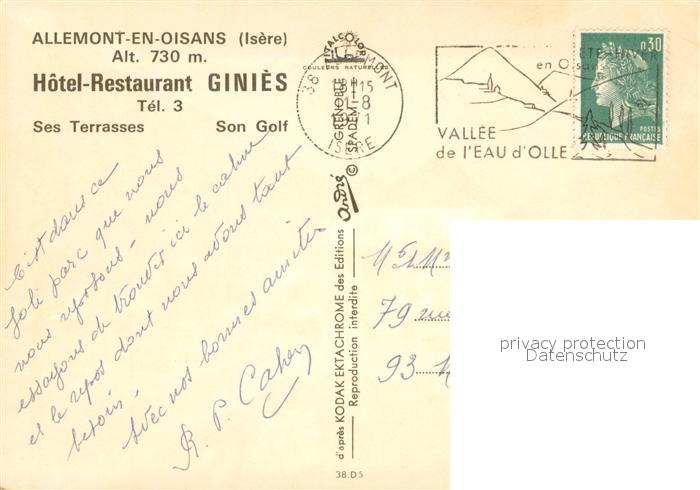 ALLEMONT-EN-OISANS (Isère)
Alt. 730 m.
Hôtel-Restaurant GINIÈS
Tél. 3
Ses Terrasses Son Golf
ITALCOLOR
COULEURS NATURELLES
38
15
1-8
ISÈRE
GRENOBLE
SPADEM
© André
en Oisans
VALLÉE
de l'EAU d'OLLE
0,30
POSTES
REPUBLIQUE FRANÇAISE
C'est dans ce
joli parc que nous
nous reposons - nous
essayons de trouver ici le calme
et le repos dont nous avons tant
besoin.
Avec nos bonnes amitiés
R. P. Cahen
d'après KODAK EKTACHROME des Editions
Reproduction interdite
38.D5
79 rue
93
privacy protection
Datenschutz